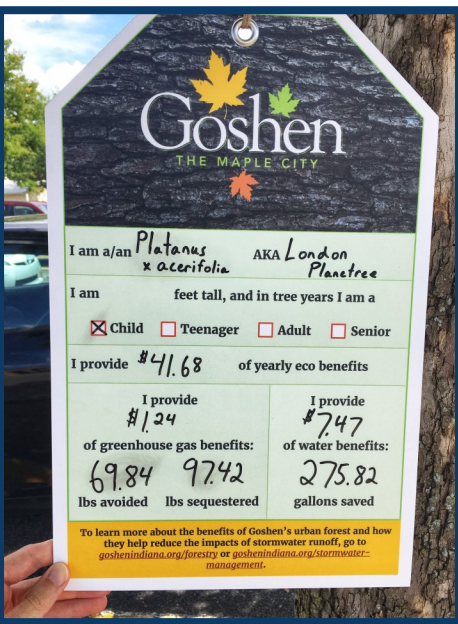 Goshen
THE MAPLE CITY
I am a/an Platanus AKA London
x acerifolia Planetree
I am feet tall, and in tree years I am a
Child Teenager Adult Senior
I provide $41.68 of yearly eco benefits
I provide
$1.24
of greenhouse gas benefits:
69.84 97.42
lbs avoided lbs sequestered
I provide
$7.47
of water benefits:
275.82
gallons saved
To learn more about the benefits of Goshen's urban forest and how
they help reduce the impacts of stormwater runoff, go to
goshenindiana.org/forestry or goshenindiana.org/stormwater-
management.